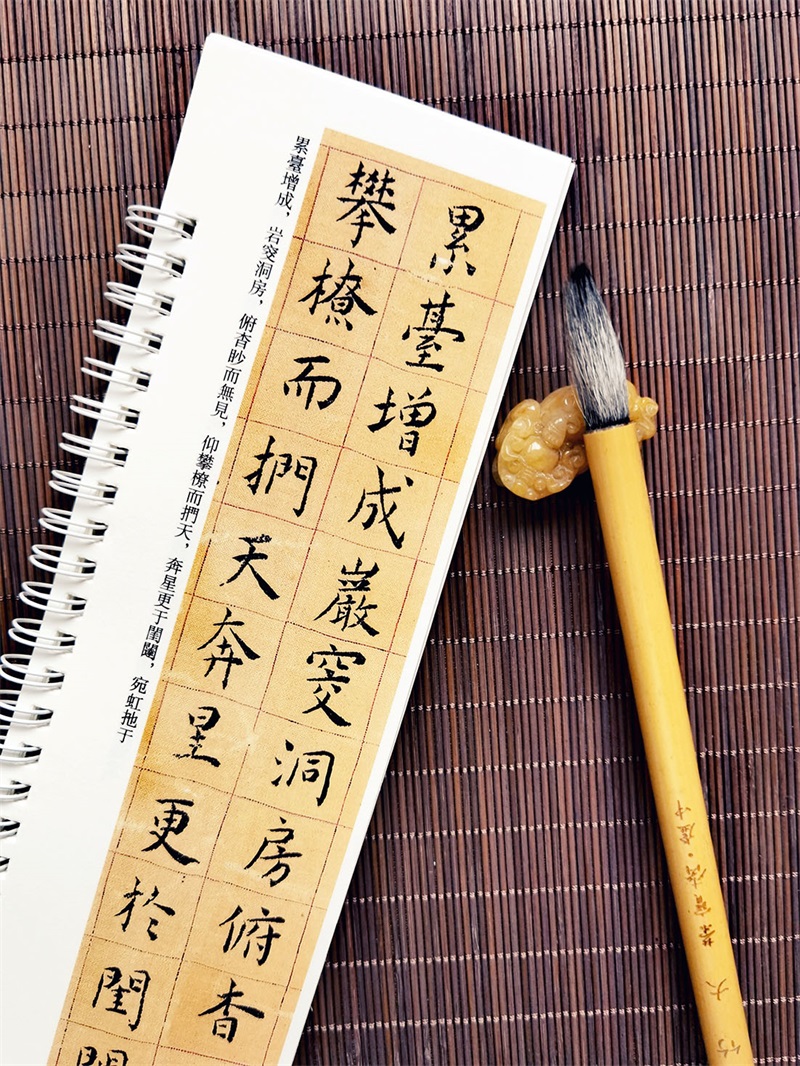 累臺增成巖窔洞房俯杳
攀橑而捫天奔星更於閨闥
累臺增成，岩窔洞房，俯杳眇而無見，仰攀橑而捫天，奔星更于閨闥，宛虹扡于
榮寳齋·虛中
大
竹